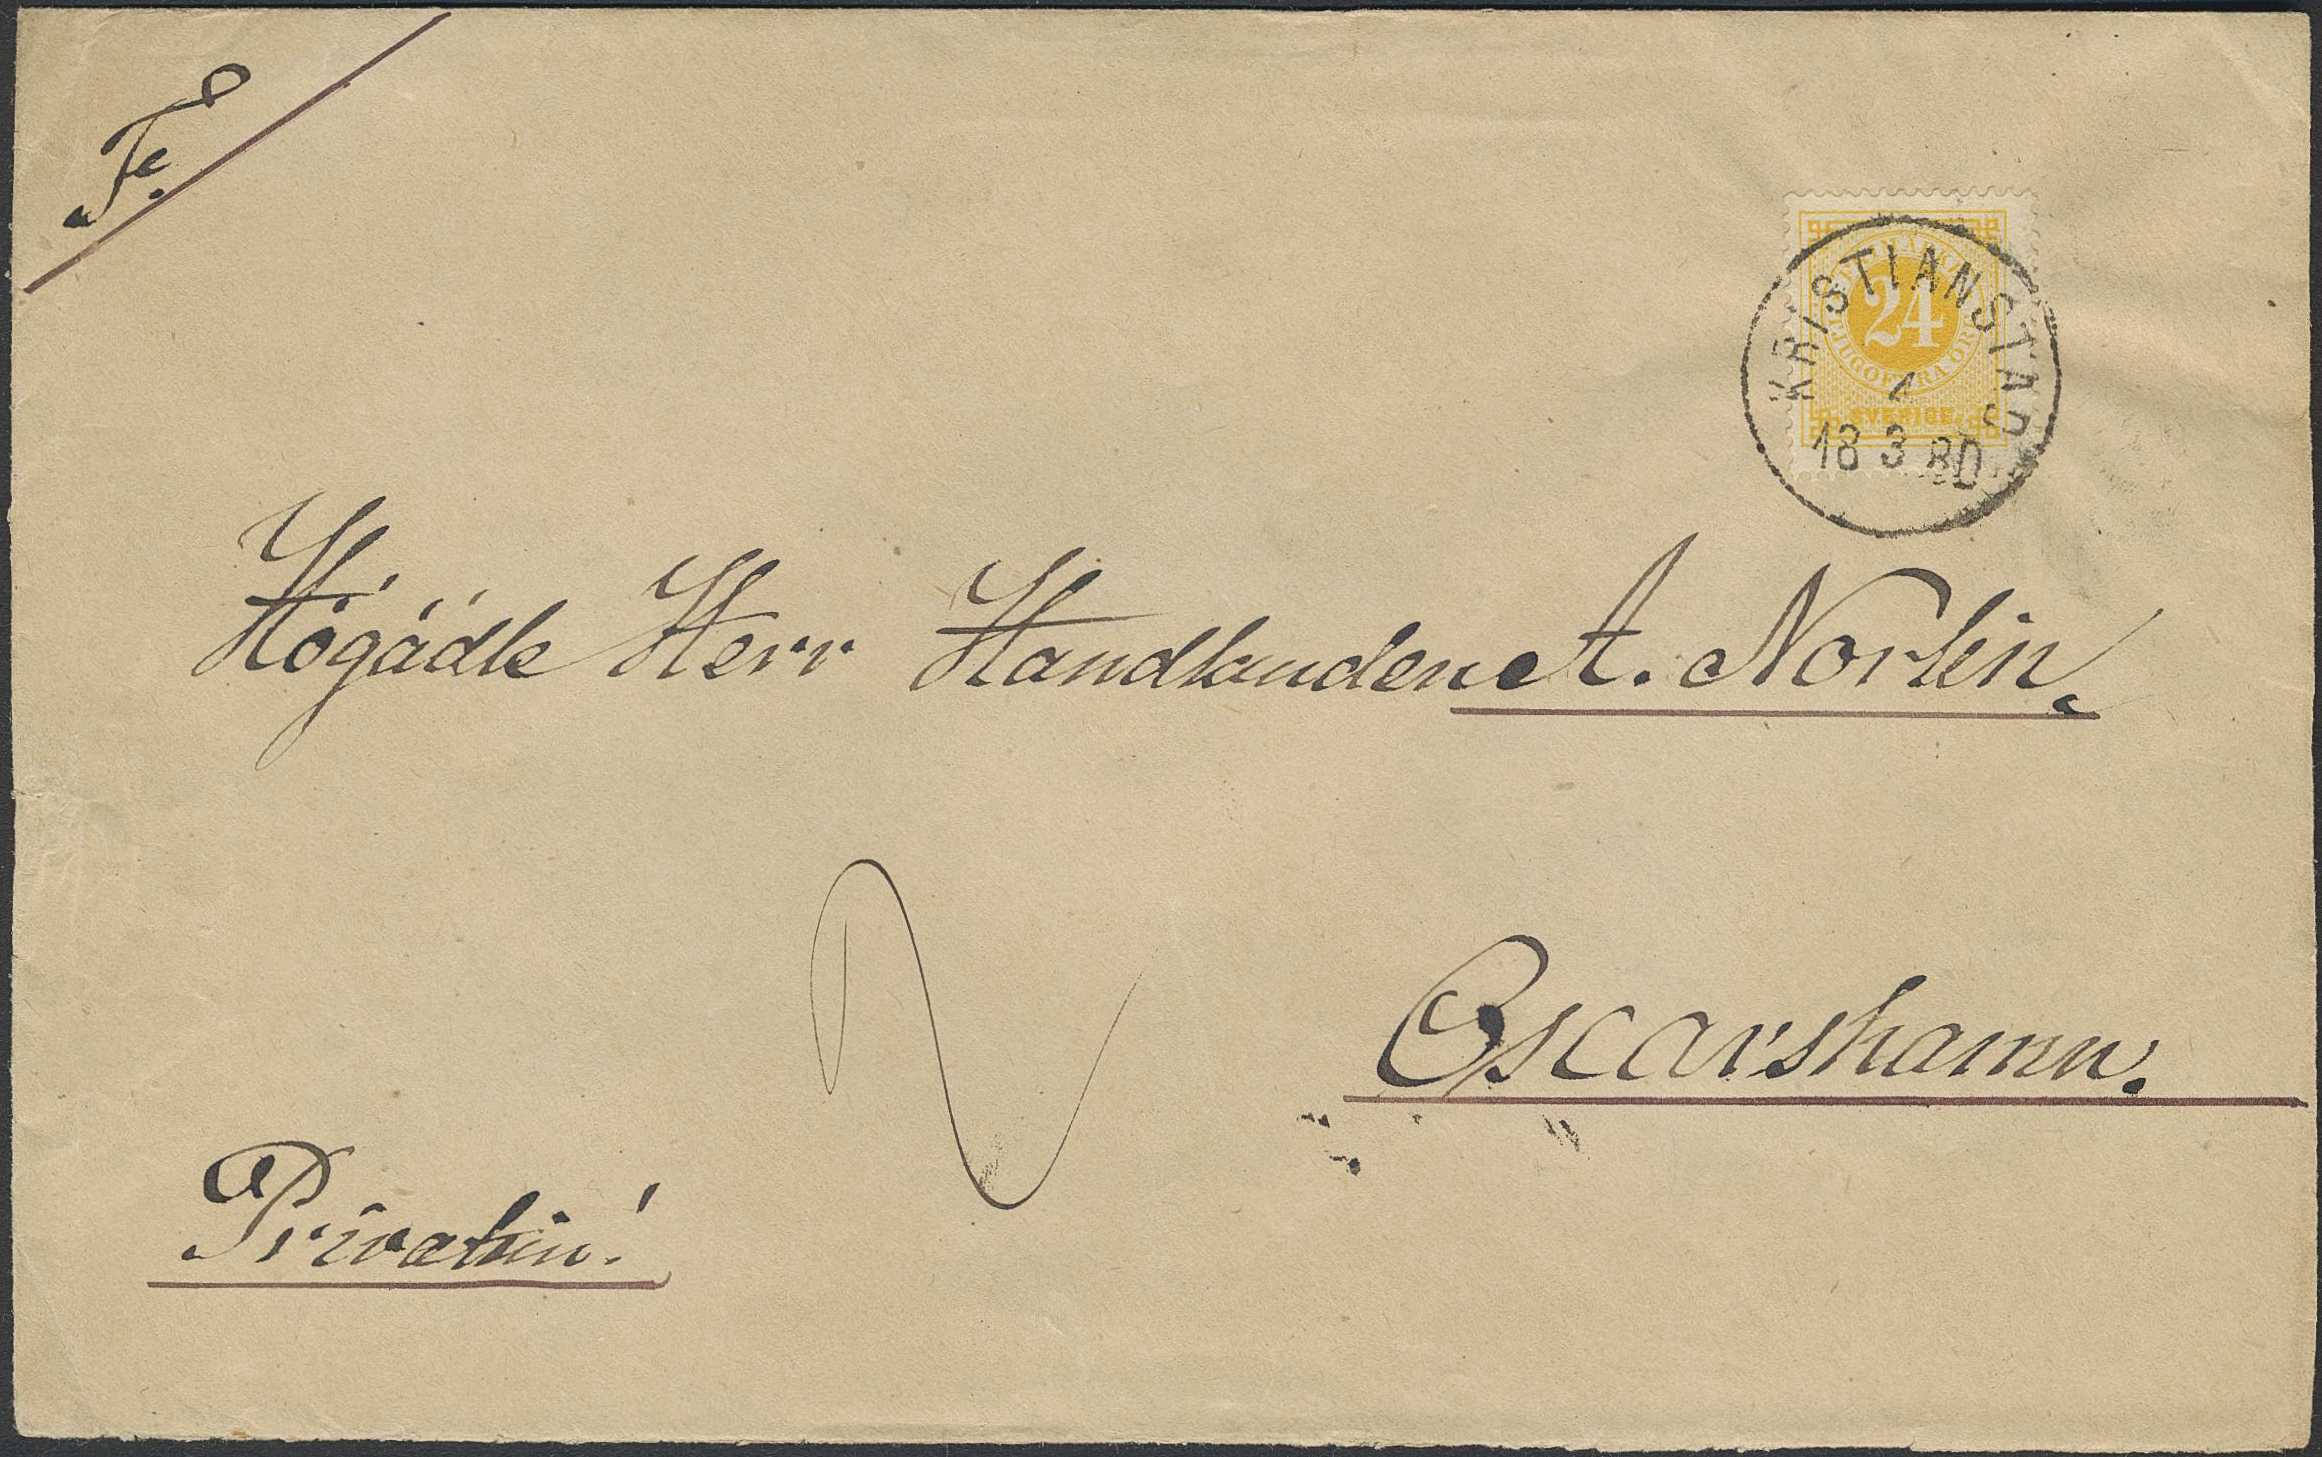 F.
TJUGOFYRA ÖRE
24
SVERIGE.
KRISTIANSTAD
1
18 3 80
Högädle Herr Handlanden A. Norlin.
2
Oscarshamn.
Privatim!